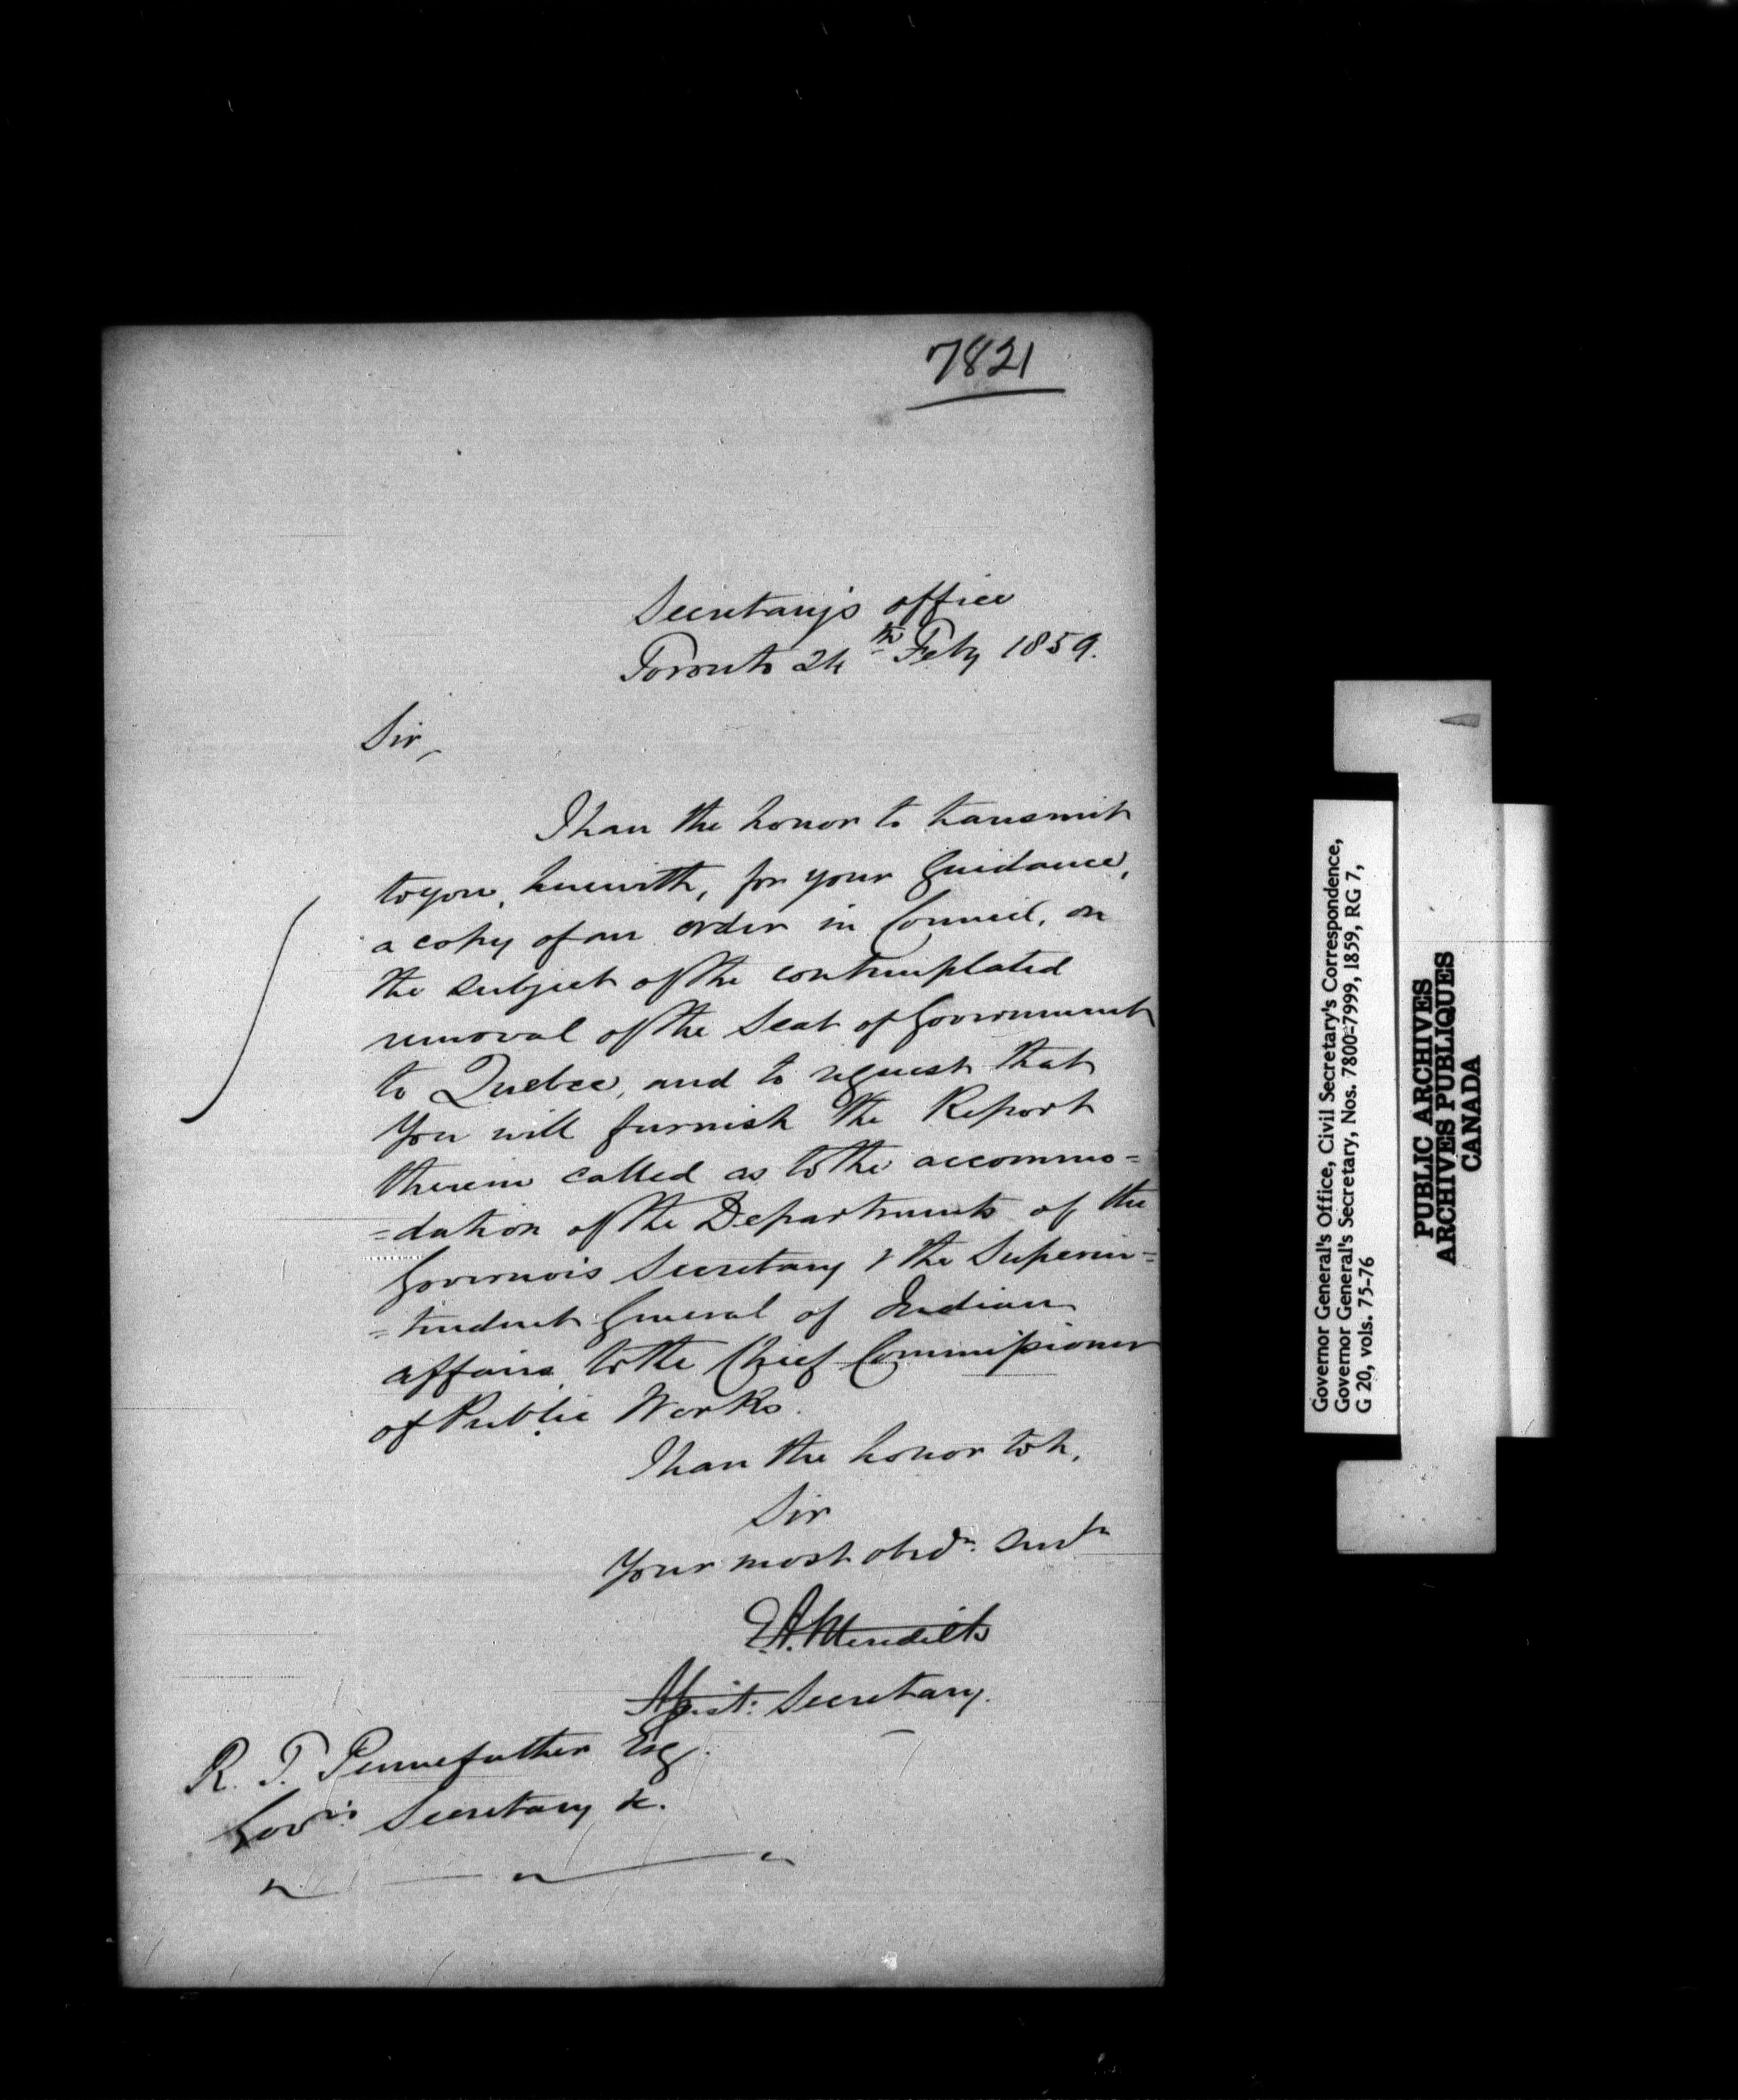 7821
Secretary's office
Toronto 24th Feby 1859.
Sir,
I have the honor to transmit
to you, herewith, for your Guidance,
a copy of an order in Council, on
the subject of the contemplated
removal of the Seat of Government
to Quebec, and to request that
you will furnish the Report
therein called as to the accommo=
=dation of the Departments of the
Governor's Secretary & the Superin=
=tendent General of Indian
affairs, to the Chief Commissioner
of Public Works.
I have the honor to be,
Sir
Your most obedt. Servt
E.A. Meredith
Assist: Secretary.
R. T. Pennefather Esq.
Govr's Secretary &c.
Governor General's Office, Civil Secretary's Correspondence,
Governor General's Secretary, Nos. 7800-7999, 1859, RG 7,
G 20, vols. 75-76
PUBLIC ARCHIVES
ARCHIVES PUBLIQUES
CANADA